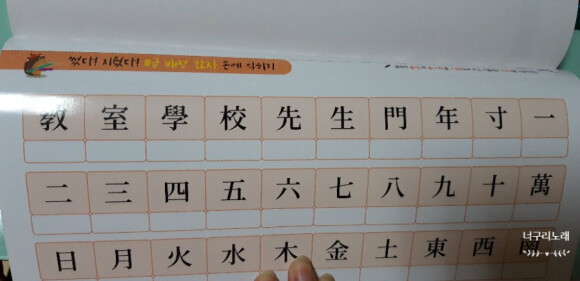 썼다! 지웠다! 8급 배정 한자 눈에 익히기
教 室 學 校 先 生 門 年 寸 一
二 三 四 五 六 七 八 九 十 萬
日 月 火 水 木 金 土 東 西 南
너구리노래